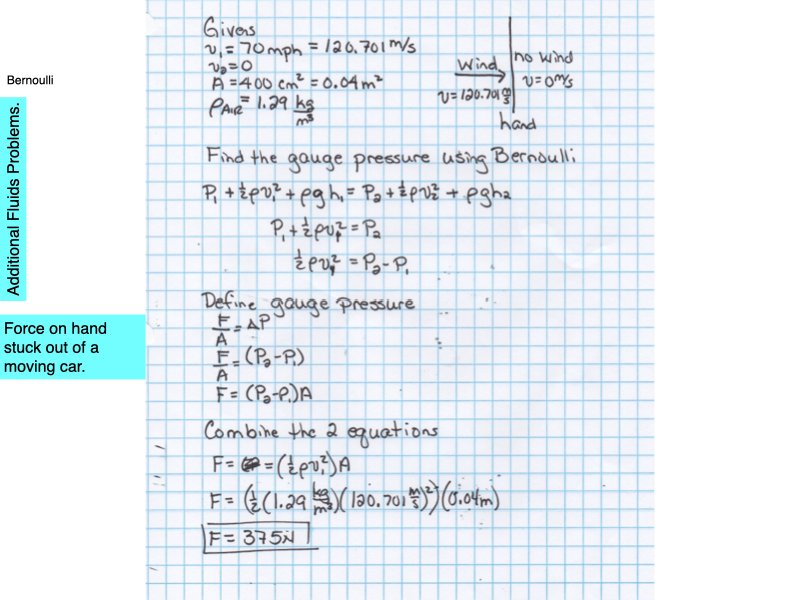 Bernoulli
Additional Fluids Problems.
Force on hand
stuck out of a
moving car.
Givens
v₁ = 70 mph = 120.701 m/s
v₂ = 0
A = 400 cm² = 0.04 m²
ρAIR = 1.29 kg/m³
Wind
no wind
v = 120.701 m/s
v = 0 m/s
hand
Find the gauge pressure using Bernoulli
P₁ + ½ρv₁² + ρgh₁ = P₂ + ½ρv₂² + ρgh₂
P₁ + ½ρv₁² = P₂
½ρv₁² = P₂ - P₁
Define gauge pressure
F/A = ΔP
F/A = (P₂-P₁)
F = (P₂-P₁)A
Combine the 2 equations
F = = (½ρv₁²)A
F = (½(1.29 kg/m³)(120.701 m/s)²)(0.04m)
F = 375N